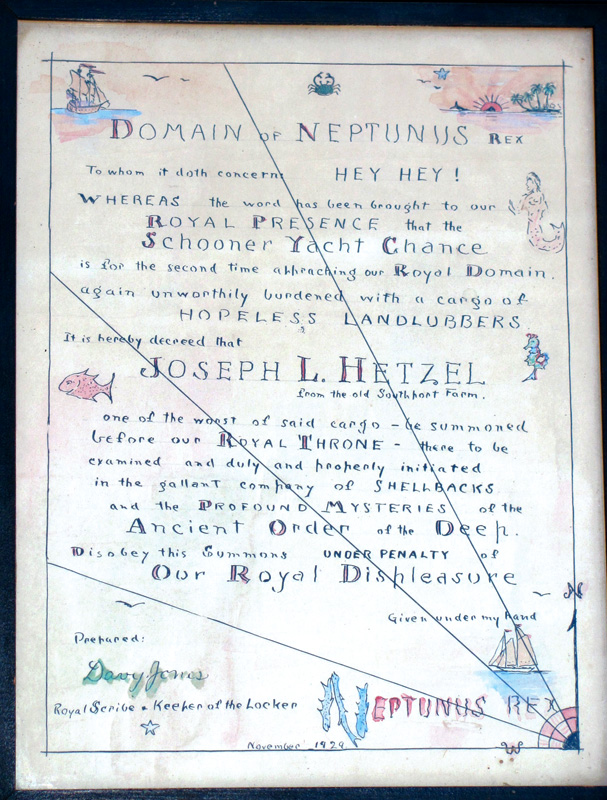 DOMAIN OF NEPTUNUS REX
To whom it doth concern: HEY HEY!
WHEREAS the word has been brought to our
ROYAL PRESENCE that the
Schooner Yacht Chance
is for the second time approaching our Royal Domain.
again unworthily burdened with a cargo of
HOPELESS LANDLUBBERS
It is hereby decreed that
JOSEPH L. HETZEL
from the old Southport Farm.
one of the worst of said cargo - be summoned
before our ROYAL THRONE - there to be
examined and duly and properly initiated
in the gallant company of SHELLBACKS
and the PROFOUND MYSTERIES of the
Ancient Order of the Deep.
Disobey this Summons UNDER PENALTY of
Our Royal Displeasure
N
Given under my hand
Prepared:
Davy Jones
Royal Scribe & Keeper of the Locker
NEPTUNUS REX
W
November 1929